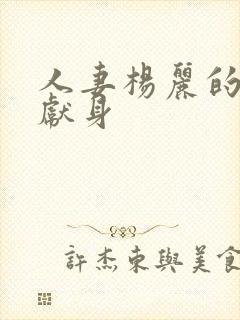 人妻楊麗的
獻身
許杰東與美食